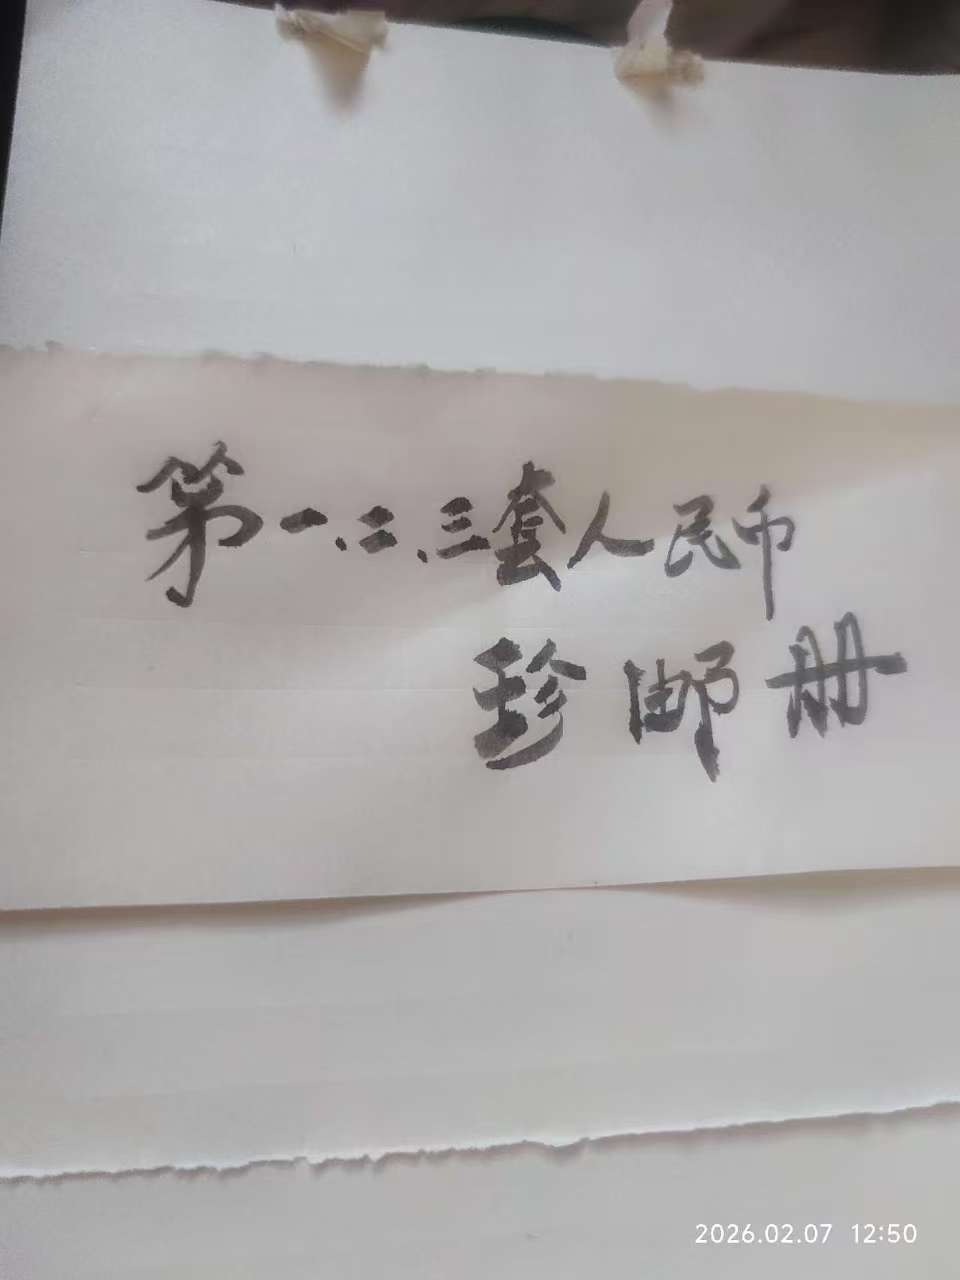 第一、二、三套人民币
珍邮册
2026.02.07 12:50